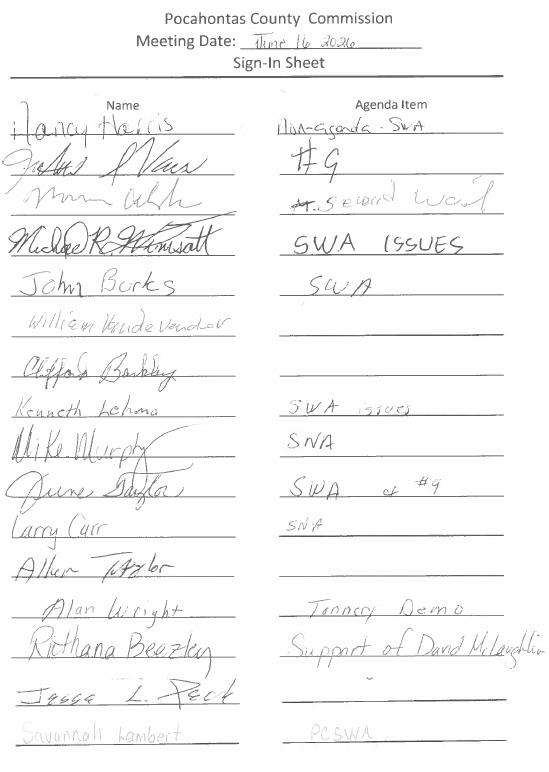 Pocahontas County Commission
Meeting Date: June 16 2026
Sign-In Sheet
Name Agenda Item
Nancy Harris Non-agenda - SWA
#9
Michael R. Wimsatt SWA ISSUES
John Burks SWA
William Vandevender
Clifford Barkley
Kenneth Lehma SWA issues
Mike Murphy SWA
June Taylor SWA & #9
Larry Carr SWA
Allen Taylor
Alan Wright Tannery Demo
Beezley Support of David McLaughlin
Jessa L. Peck
Savannah Lambert PCSWA